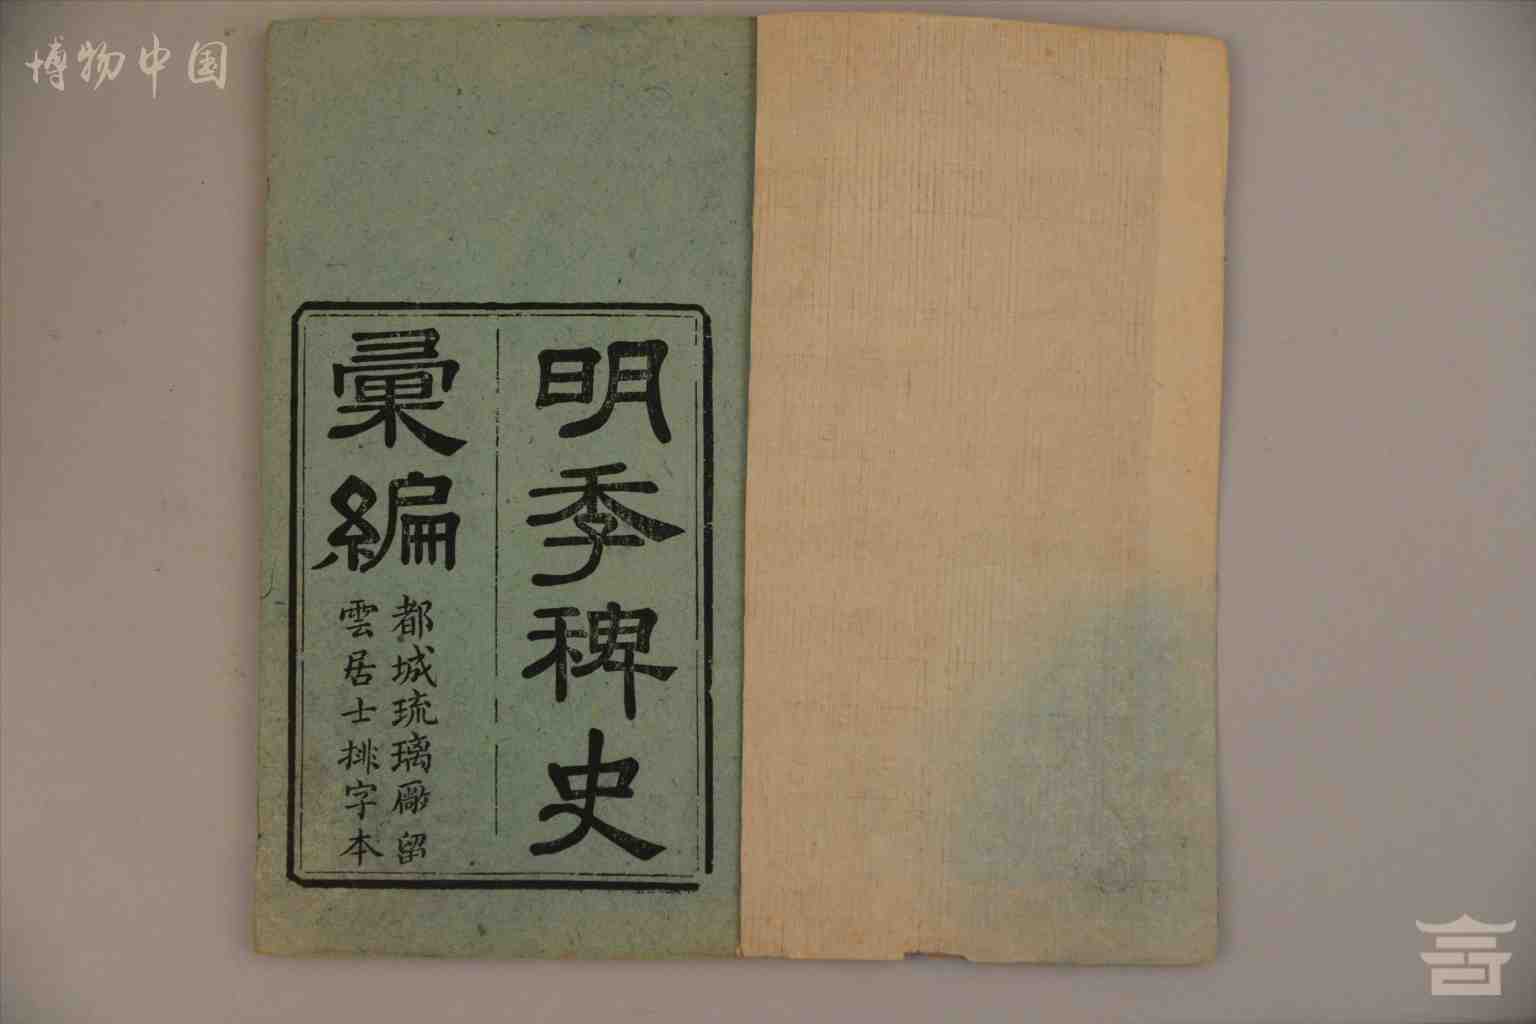 博物中国
明季稗史
彙編
都城琉璃厰留
雲居士排字本